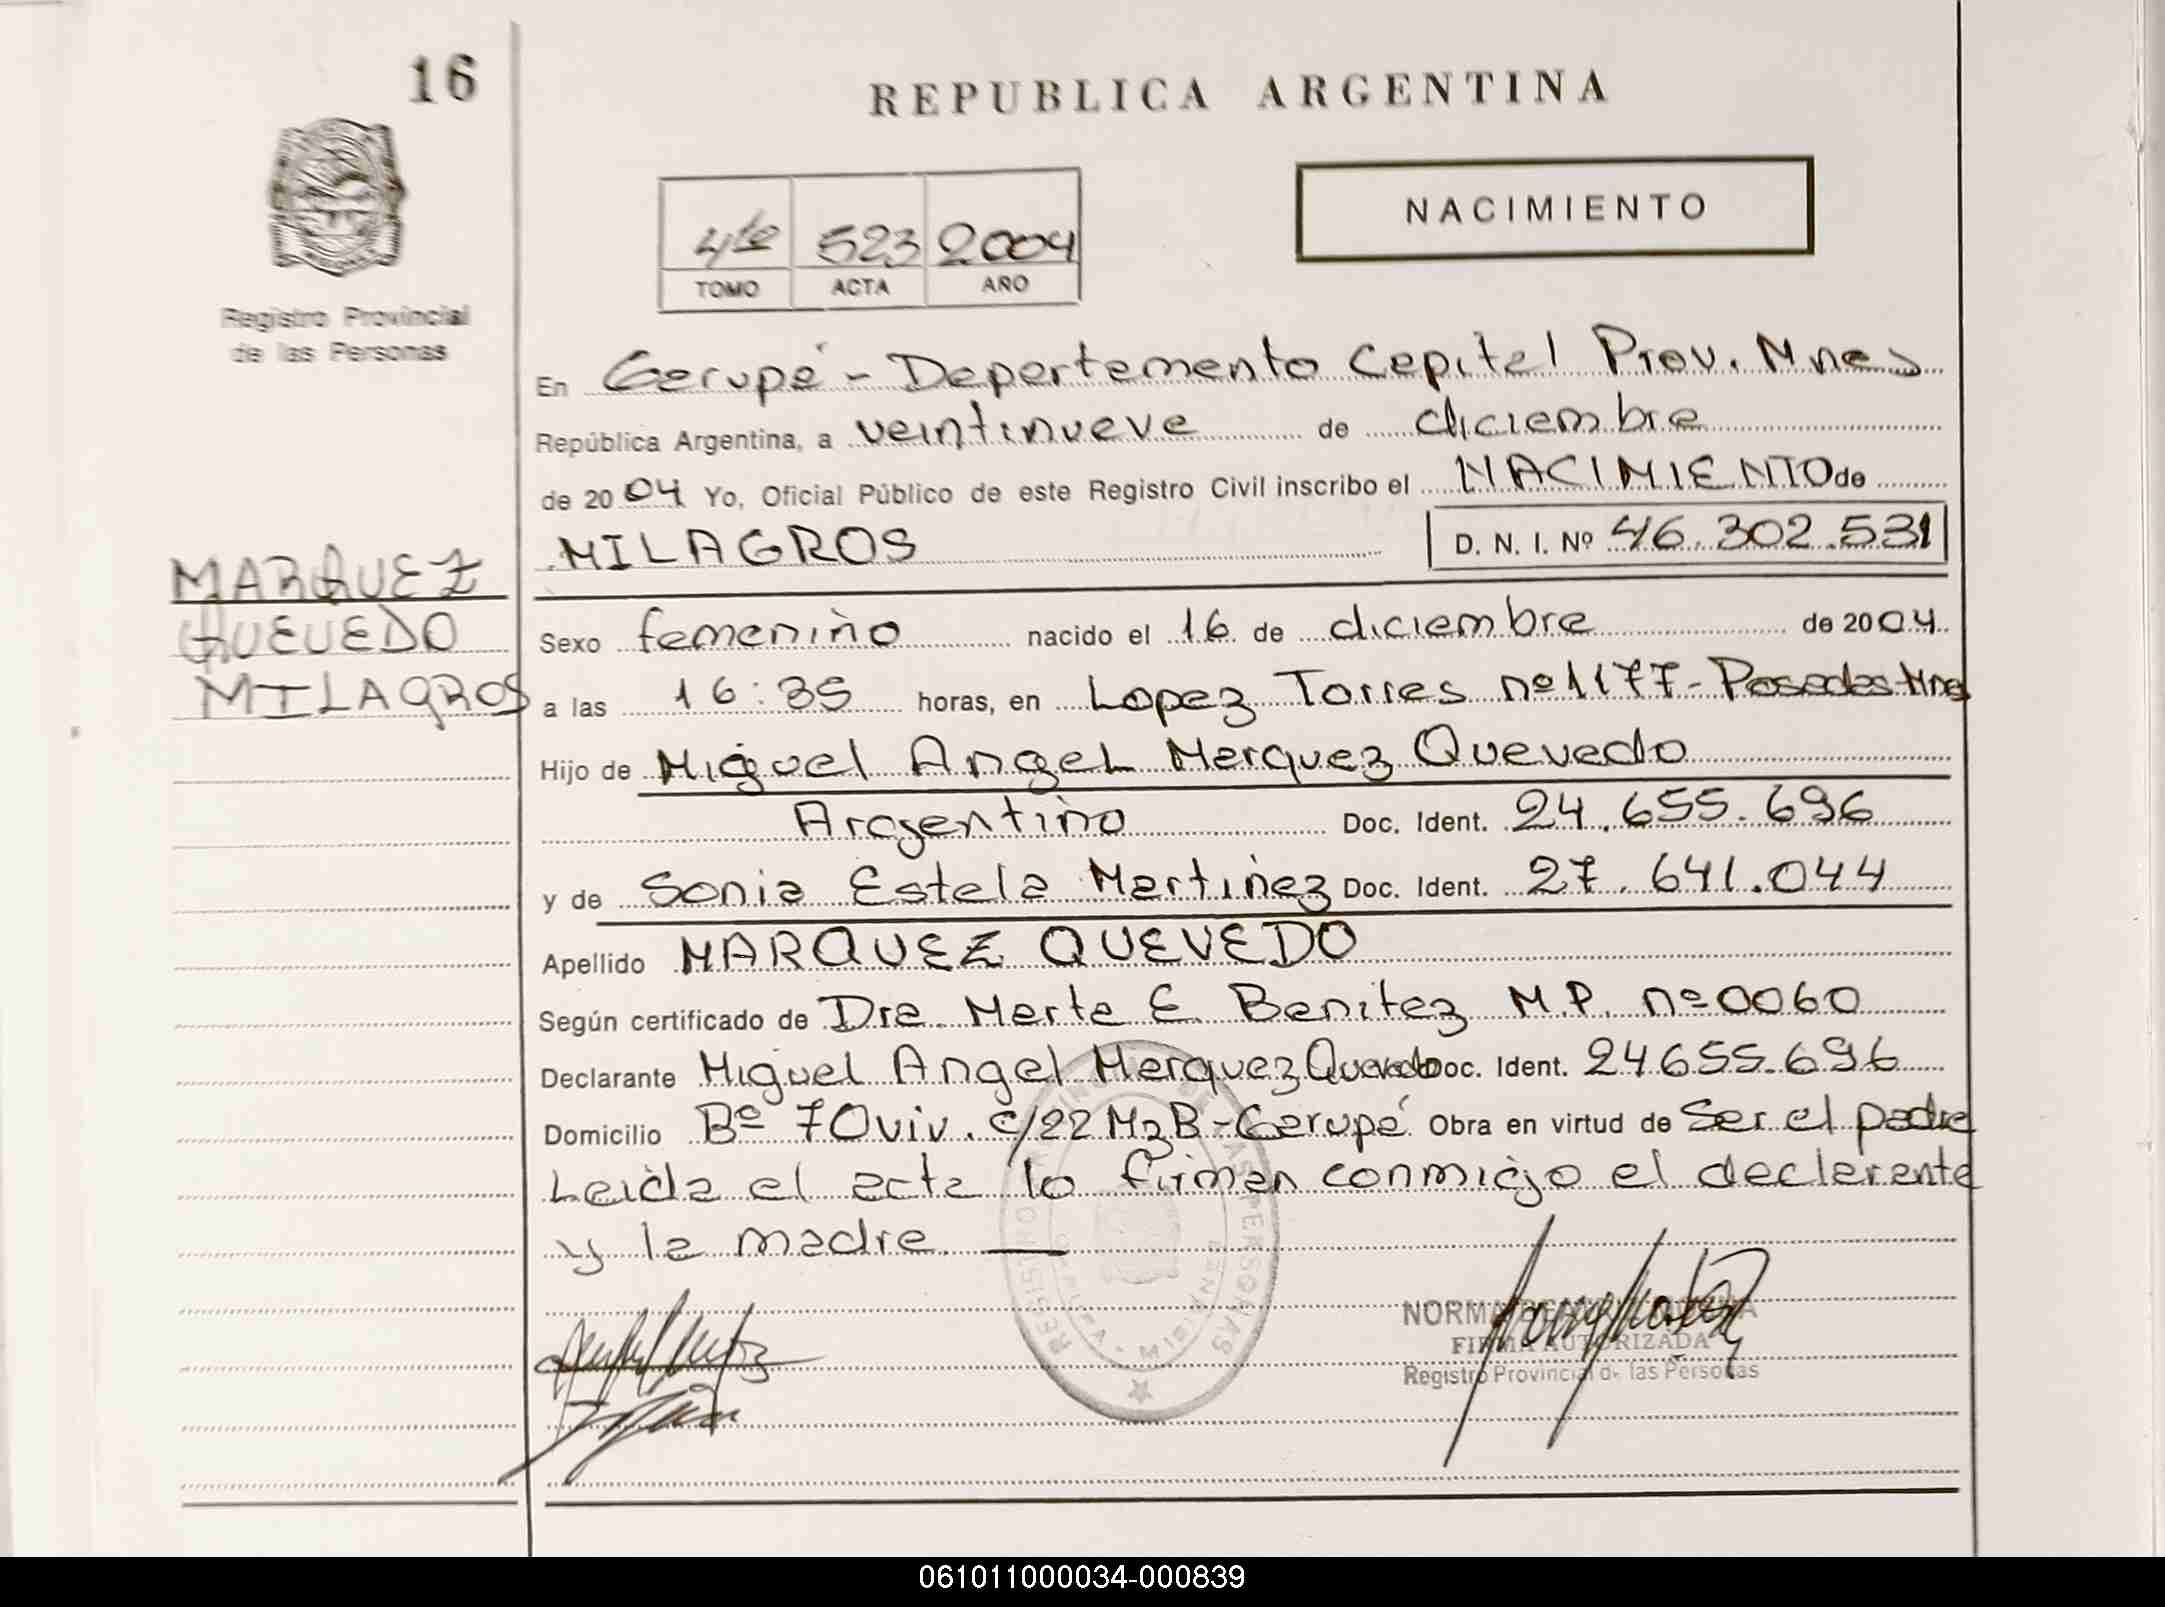 16
REPUBLICA ARGENTINA
NACIMIENTO
4to 523 2004
TOMO ACTA AÑO
Registro Provincial
de las Personas
En Garupá - Departamento Capital Prov. Mnes
República Argentina, a veintinueve de diciembre
de 2004 Yo, Oficial Público de este Registro Civil inscribo el NACIMIENTO de
MILAGROS D. N. I. Nº 46.302.531
MARQUEZ
QUEVEDO
MILAGROS
Sexo femenino nacido el 16 de diciembre de 2004
a las 16:35 horas, en Lopez Torres nº 1177 - Posadas Mnes
Hijo de Miguel Angel Marquez Quevedo
Argentino Doc. Ident. 24.655.696
y de Sonia Estela Martinez Doc. Ident. 27.641.044
Apellido MARQUEZ QUEVEDO
Según certificado de Dra. Marta E. Benitez M.P. nº 0060
Declarante Miguel Angel Marquez Quevedo Doc. Ident. 24655.696
Domicilio Bº 70 viv. c/22 Mz B - Garupá Obra en virtud de Ser el padre
Leida el acta la firman conmigo el declarante
y la madre.
REGISTRO PERSONAS
NORMA
FIRMA AUTORIZADA
Registro Provincial de las Personas
061011000034-000839